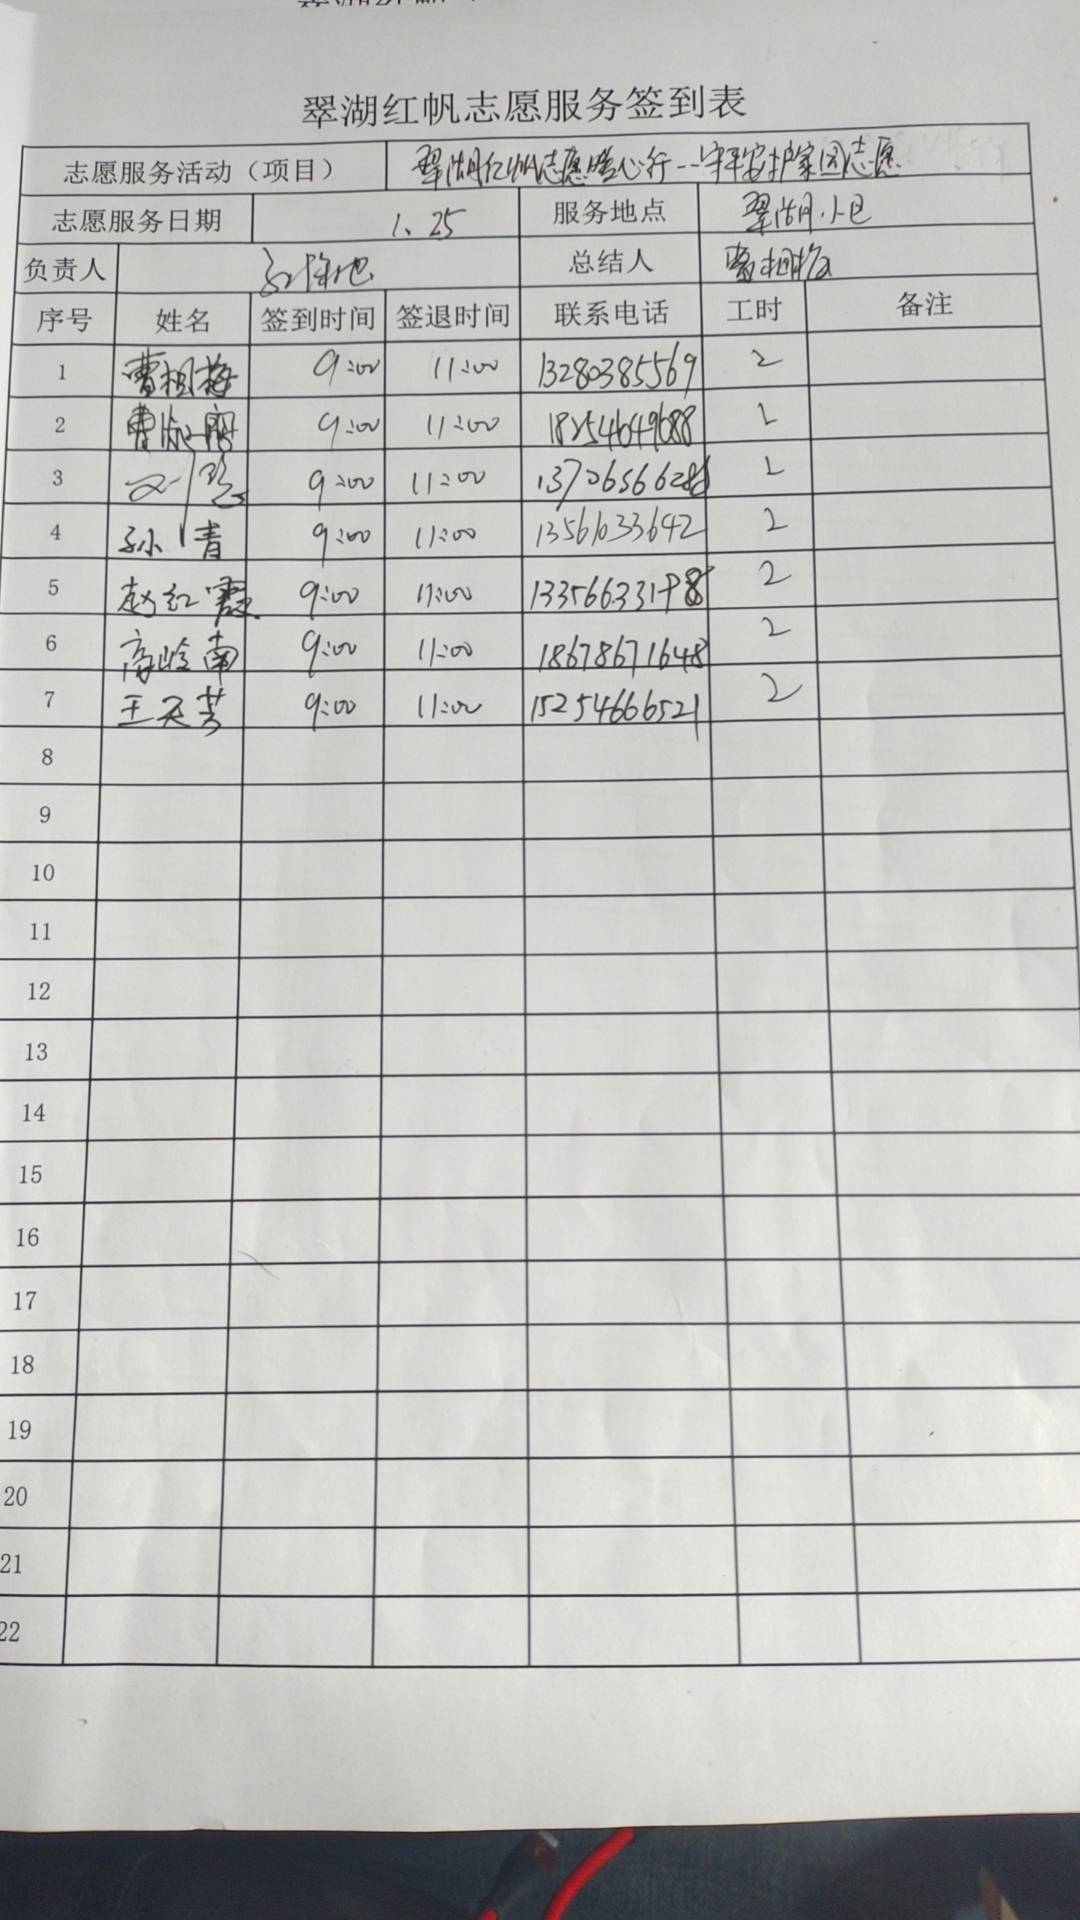 翠湖红帆志愿服务签到表
志愿服务活动（项目） 翠湖红帆志愿暖心行--守平安护家园志愿
志愿服务日期 1.25 服务地点 翠湖小区
负责人 总结人 曹祖梅
序号 姓名 签到时间 签退时间 联系电话 工时 备注
1 曹祖梅 9:00 11:00 13280385569 2
2 9:00 11:00 18254649688 2
3 9:00 11:00 2
4 孙青 9:00 11:00 13561033642 2
5 赵红霞 9:00 11:00 2
6 高岭南 9:00 11:00 18678671648 2
7 王天芳 9:00 11:00 15254666521 2
8
9
10
11
12
13
14
15
16
17
18
19
20
21
22